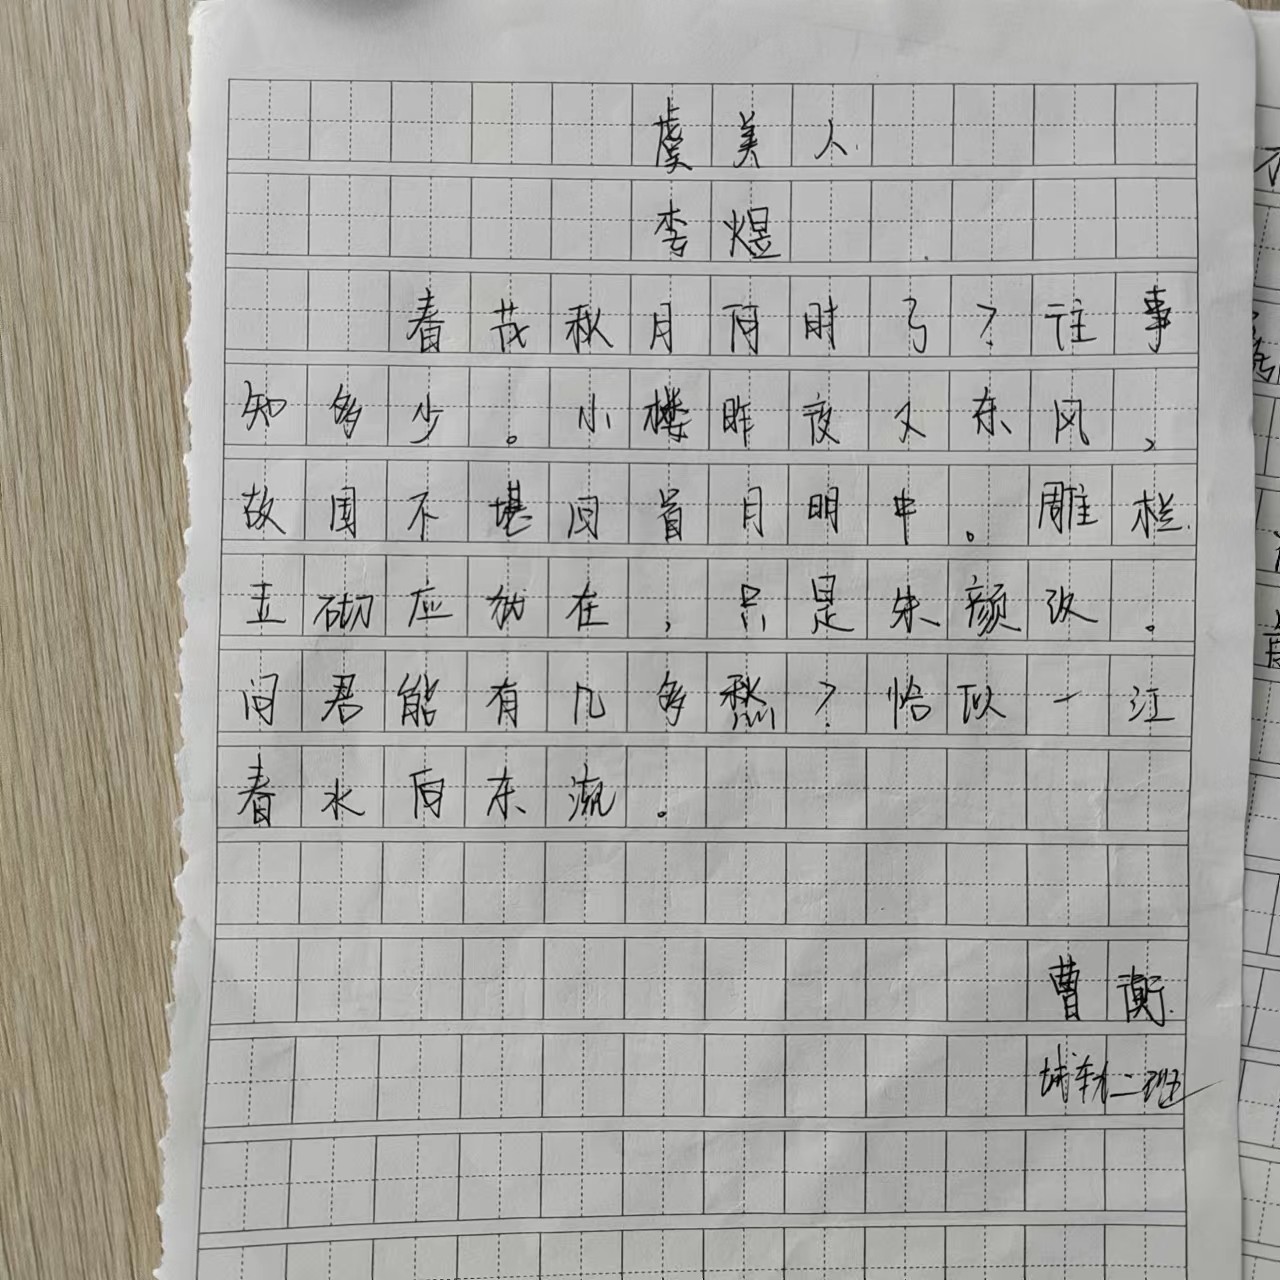 虞美人
李煜
春花秋月何时了?往事
知多少。小楼昨夜又东风,
故国不堪回首月明中。雕栏
玉砌应犹在,只是朱颜改。
问君能有几多愁?恰似一江
春水向东流。
曹衡
城轨二班